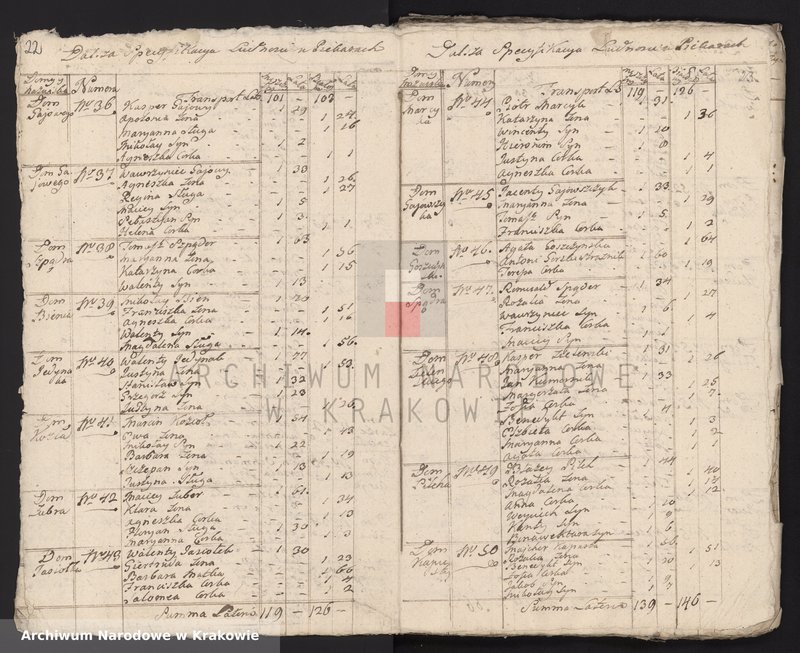 22
Dalsza Specyfikacya Ludności w Psibarach
Domy
Numera
Transport L. 101 - 107 -
Dom Gajowego No 36 Kasper Gajowy 1 29
Apolonia Żona 1 24
Maryanna Sługa 1 16
Mikołay Syn 1 2
Agnieszka Corka 1 1
Dom Gajowego No 37 Wawrzyniec Gajowy 1 30
Agnieszka Żona 1 26
Regina Sługa 1 27
Maciey Syn 1 5
Sebastyan Syn 1 3
Helena Corka 1 1
Dom No 38 Tomasz 1 63
Maryanna Żona 1 56
Katarzyna Corka 1 15
Walenty Syn 1 13
Dom Bienia No 39 Mikołay Bień 1
Franciszka Żona 1 51
Agnieszka Corka 1 16
Walenty Syn 1 14
Magdalena Sługa 1 56
Dom Jedynaka No 40 Walenty Jedynak 1 77
Justyna Żona 1 53
Stanisław Syn 1 32
Grzegorz Syn 1 23
Justyna Żona
Dom Kozła No 41 Marcin Kozioł 1 54
Ewa Żona 1 43
Mikołay Syn 1 22
Barbara Żona 1 19
Szczepan Syn 1 13
Justyna Sługa 1 13
Dom Lubra No 42 Maciey Luber 1 61
Klara Żona 1 34
Agnieszka Corka 1 13
Floryan Sługa 1 30
Maryanna Corka 1 13
Dom No 43 Walenty 1 30
Giertruda Żona 1 23
Barbara Matka 1 66
Franciszka Corka 1 4
Salomea Corka 1 2
Summa Lateris 119 - 126 -
Dalsza Specyfikacya Ludności w Psibarach
Domy
Numera
Transport L. 119 - 126 -
Dom No 44 Piotr 1 31
Katarzyna Żona 1 36
Wincenty Syn 1 10
Hieronim Syn 1 8
Justyna Corka 1 4
Agnieszka Corka 1 1
Dom No 45 1 33
Maryanna Żona 1 29
Tomasz Syn 1 5
Franciszka Corka 1 2
Dom No 46 Agata 1 64
Antoni 1 60
Teresa Corka 1 19
Dom No 47 Romuald 1 34
Rozalia Żona 1 27
Wawrzyniec Syn 1 6
Franciszka Corka 1 4
Maciey Syn 1 1
Dom No 48 Kasper Zieleński 1 31
Maryanna Żona 1 26
Jan 1 33
Małgorzata Żona 1 25
Zofia Corka 1 7
Benedykt Syn 1 4
Elżbieta Corka 1 3
Maryanna Corka 1 2
Agata Corka
Dom Pilcha No 49 Błażey Pilch 1 44
Rozalia Żona 1 40
Magdalena Corka 1 14
Anna Corka 1 12
Woyciech Syn 1 10
Kanty Syn 1 9
Bonawentura Syn 1 6
Dom No 50 Melcher Kapusta 1 56
Rozalia Żona 1 51
Benedykt Syn 1 20
Zofia Corka 1 13
Jakob Syn 1 9
Mikołay Syn 1 7
Summa Lateris 139 - 146 -
ARCHIWUM NARODOWE
W KRAKOWIE
Archiwum Narodowe w Krakowie